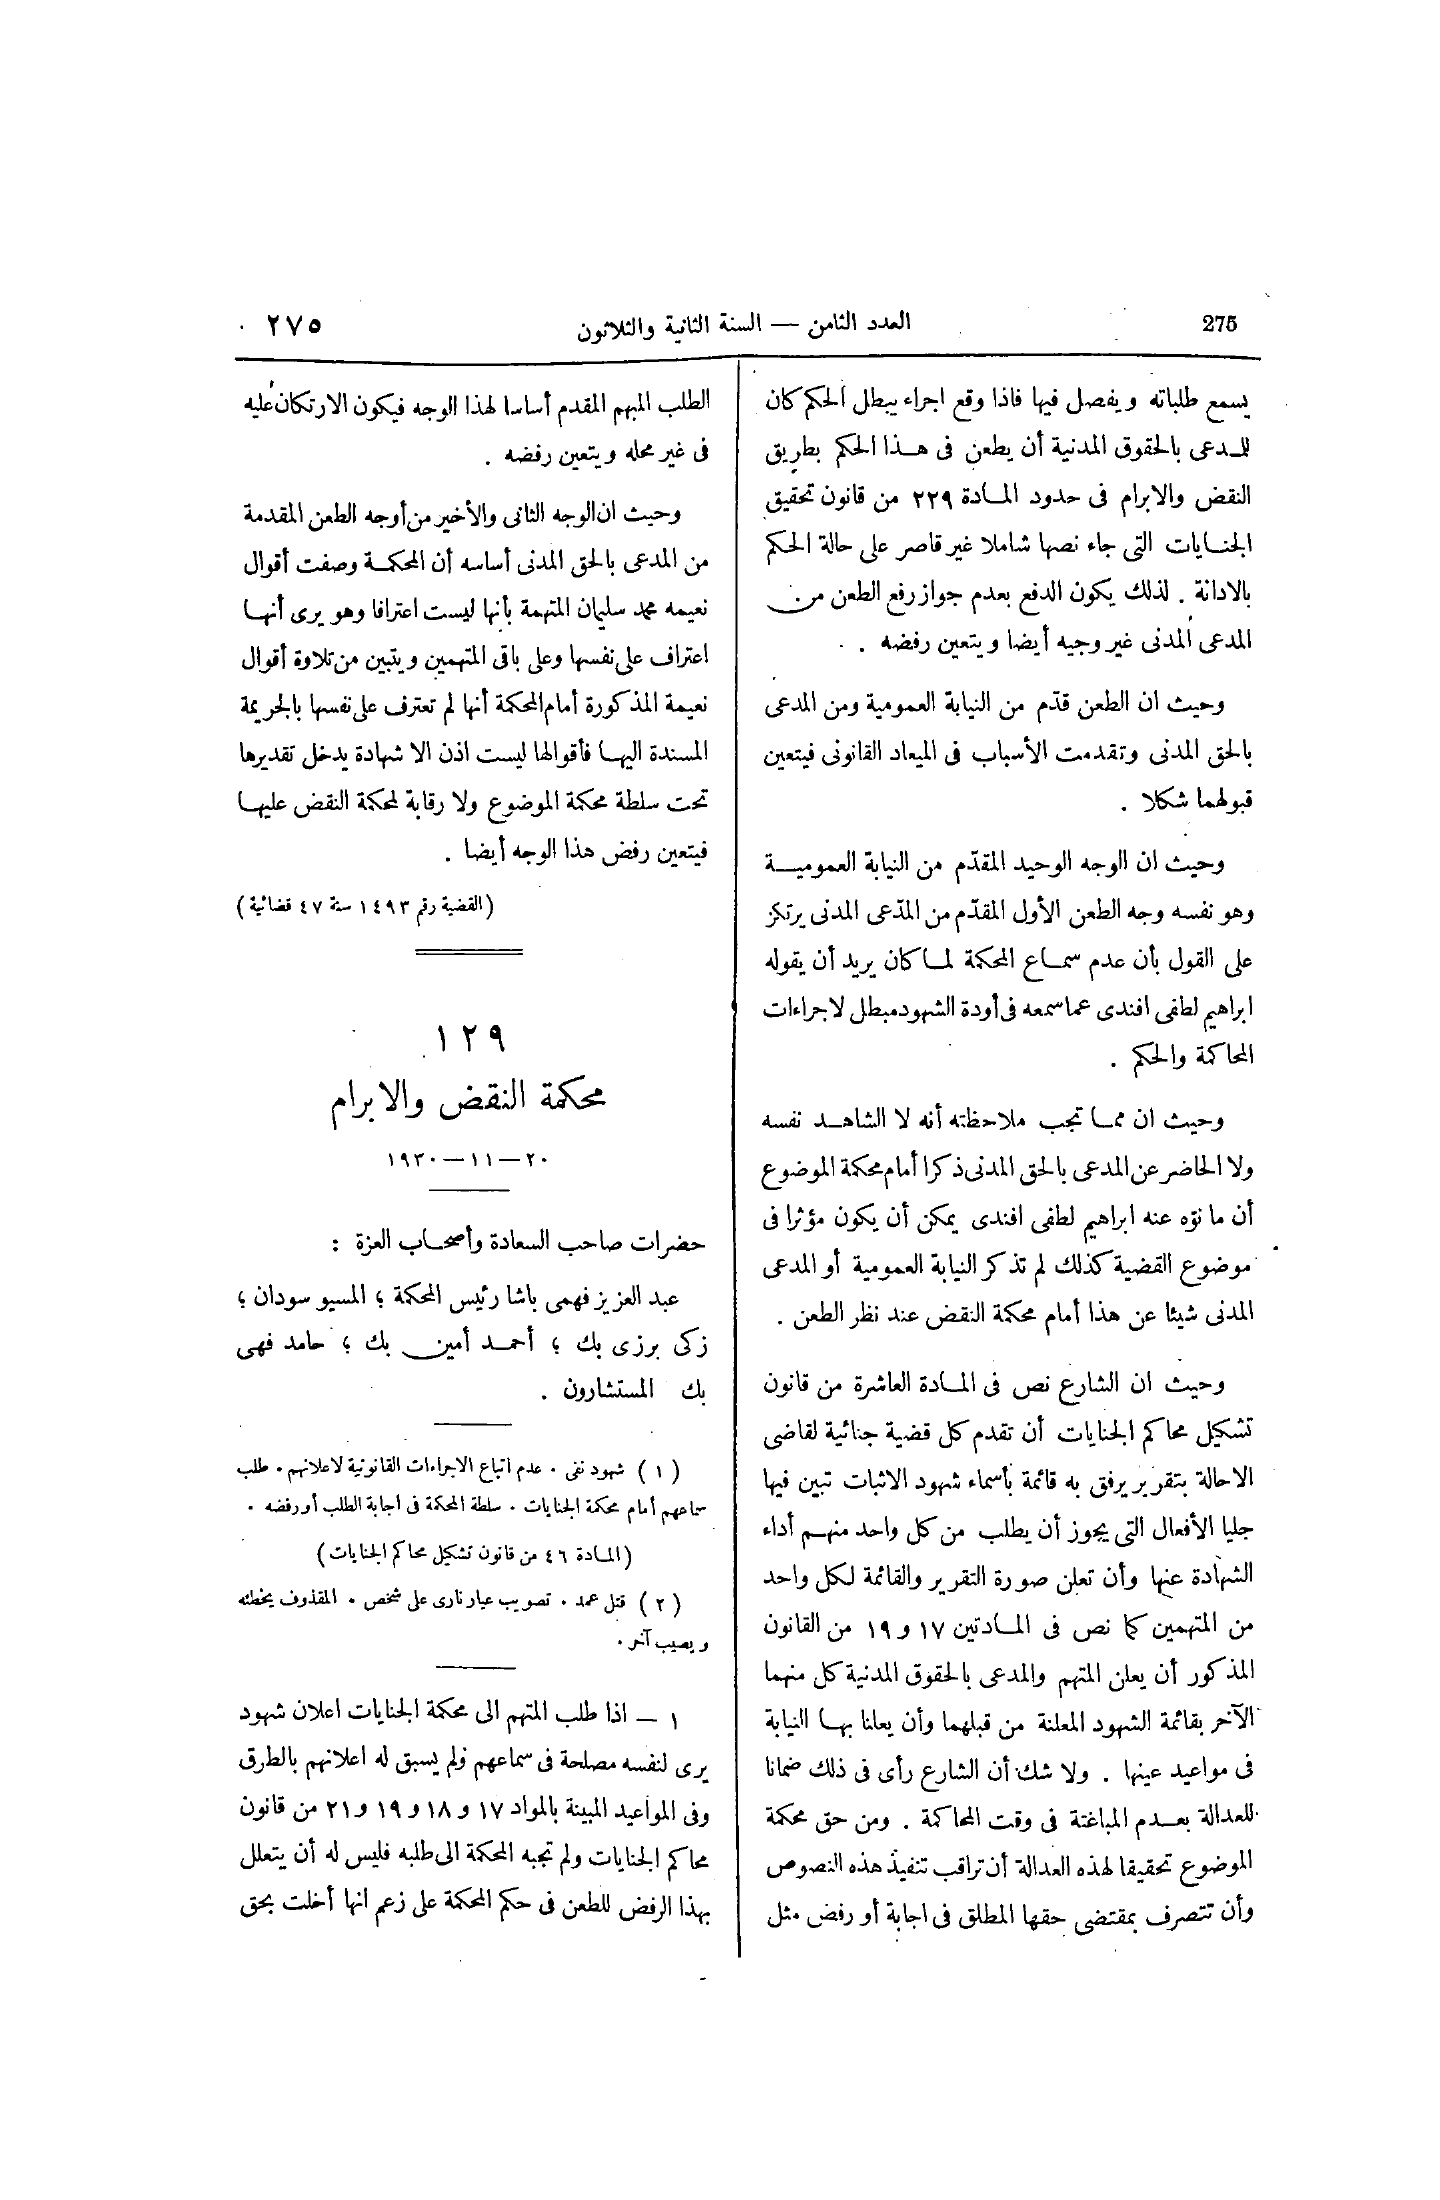 275
العدد الثامن — السنة الثانية والثلاثون
٢٧٥
يسمع طلباته ويفصل فيها فاذا وقع اجراء يبطل الحكم كان
للمدعى بالحقوق المدنية أن يطعن فى هذا الحكم بطريق
النقض والابرام فى حدود المادة ٢٢٩ من قانون تحقيق
الجنايات التى جاء نصها شاملا غير قاصر على حالة الحكم
بالادانة . لذلك يكون الدفع بعدم جواز رفع الطعن من
المدعى المدنى غير وجيه أيضا ويتعين رفضه .
وحيث ان الطعن قدّم من النيابة العمومية ومن المدعى
بالحق المدنى وتقدمت الأسباب فى الميعاد القانونى فيتعين
قبولهما شكلا .
وحيث ان الوجه الوحيد المقدّم من النيابة العمومية
وهو نفسه وجه الطعن الأول المقدّم من المدّعى المدنى يرتكز
على القول بأن عدم سماع المحكمة لما كان يريد أن يقوله
ابراهيم لطفى افندى عما سمعه فى أودة الشهود مبطل لاجراءات
المحاكمة والحكم .
وحيث ان مما تجب ملاحظته أنه لا الشاهد نفسه
ولا الحاضر عن المدعى بالحق المدنى ذكرا أمام محكمة الموضوع
أن ما نوّه عنه ابراهيم لطفى افندى يمكن أن يكون مؤثرا فى
موضوع القضية كذلك لم تذكر النيابة العمومية أو المدعى
المدنى شيئا عن هذا أمام محكمة النقض عند نظر الطعن .
وحيث ان الشارع نص فى المادة العاشرة من قانون
تشكيل محاكم الجنايات أن تقدم كل قضية جنائية لقاضى
الاحالة بتقرير يرفق به قائمة بأسماء شهود الاثبات تبين فيها
جليا الأفعال التى يجوز أن يطلب من كل واحد منهم أداء
الشهادة عنها وأن تعلن صورة التقرير والقائمة لكل واحد
من المتهمين كما نص فى المادتين ١٧ و ١٩ من القانون
المذكور أن يعلن المتهم والمدعى بالحقوق المدنية كل منهما
الآخر بقائمة الشهود المعلنة من قبلهما وأن يعلنا بها النيابة
فى مواعيد عينها . ولا شك أن الشارع رأى فى ذلك ضمانا
للعدالة بعدم المباغتة فى وقت المحاكمة . ومن حق محكمة
الموضوع تحقيقا لهذه العدالة أن تراقب تنفيذ هذه النصوص
وأن تتصرف بمقتضى حقها المطلق فى اجابة أو رفض مثل
الطلب المبهم المقدم أساسا لهذا الوجه فيكون الارتكان عليه
فى غير محله ويتعين رفضه .
وحيث ان الوجه الثانى والأخير من أوجه الطعن المقدمة
من المدعى بالحق المدنى أساسه أن المحكمة وصفت أقوال
نعيمه محمد سليمان المتهمة بأنها ليست اعترافا وهو يرى أنها
اعتراف على نفسها وعلى باقى المتهمين ويتبين من تلاوة أقوال
نعيمة المذكورة أمام المحكمة أنها لم تعترف على نفسها بالجريمة
المسندة اليها فأقوالها ليست اذن الا شهادة يدخل تقديرها
تحت سلطة محكمة الموضوع ولا رقابة لمحكمة النقض عليها
فيتعين رفض هذا الوجه أيضا .
(القضية رقم ١٤٩٣ سنة ٤٧ قضائية)
١٢٩
محكمة النقض والابرام
٢٠ — ١١ — ١٩٣٠
حضرات صاحب السعادة وأصحاب العزة :
عبد العزيز فهمى باشا رئيس المحكمة ؛ المسيو سودان ؛
زكى برزى بك ؛ أحمد أمين بك ؛ حامد فهمى
بك المستشارون .
(١) شهود نفى . عدم اتباع الاجراءات القانونية لاعلانهم . طلب
سماعهم أمام محكمة الجنايات . سلطة المحكمة فى اجابة الطلب أو رفضه .
(المادة ٤٦ من قانون تشكيل محاكم الجنايات)
(٢) قتل عمد . تصويب عيار نارى على شخص . المقذوف يخطئه
ويصيب آخر .
١ — اذا طلب المتهم الى محكمة الجنايات اعلان شهود
يرى لنفسه مصلحة فى سماعهم ولم يسبق له اعلانهم بالطرق
وفى المواعيد المبينة بالمواد ١٧ و ١٨ و ١٩ و ٢١ من قانون
محاكم الجنايات ولم تجبه المحكمة الى طلبه فليس له أن يتعلل
بهذا الرفض للطعن فى حكم المحكمة على زعم انها أخلت بحق